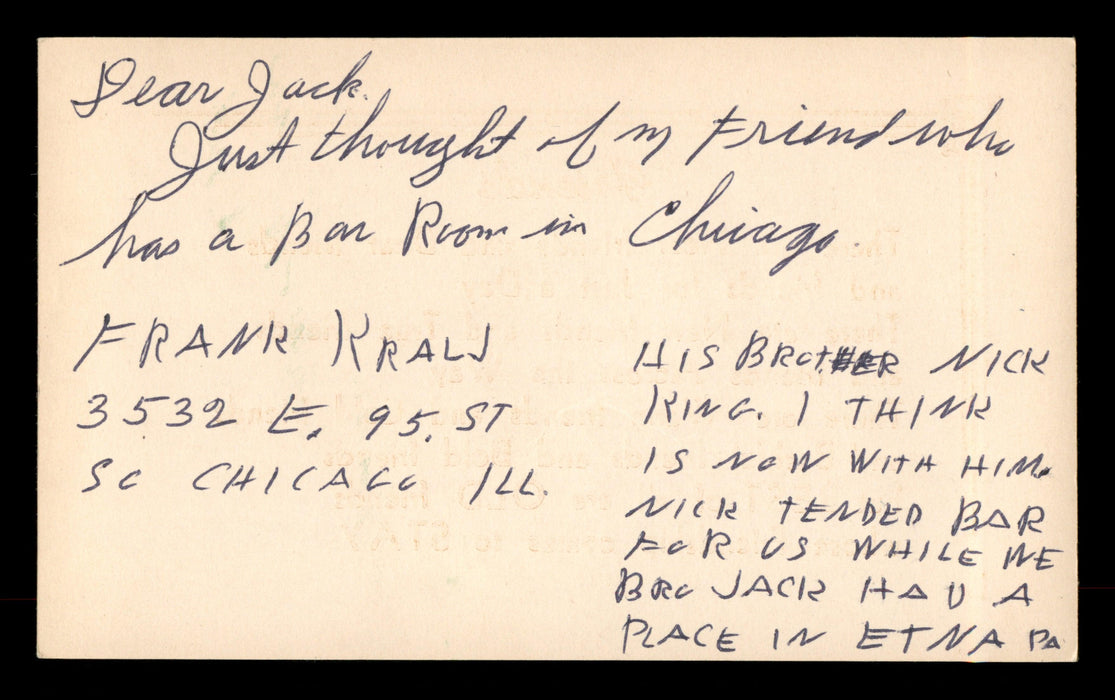 Dear Jack.
Just thought of my Friend who
has a Bar Room in Chicago.
FRANK KRALJ
3532 E. 95. ST
SO CHICAGO ILL.
HIS BROTHER NICK
KING. I THINK
IS NOW WITH HIM.
NICK TENDED BAR
FOR US WHILE WE
BRO JACK HAD A
PLACE IN ETNA PA